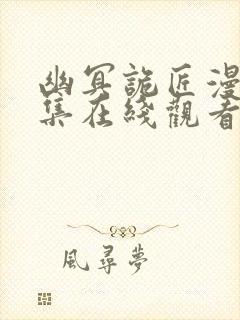 幽冥詭匠漫
集在綫觀看
風尋夢